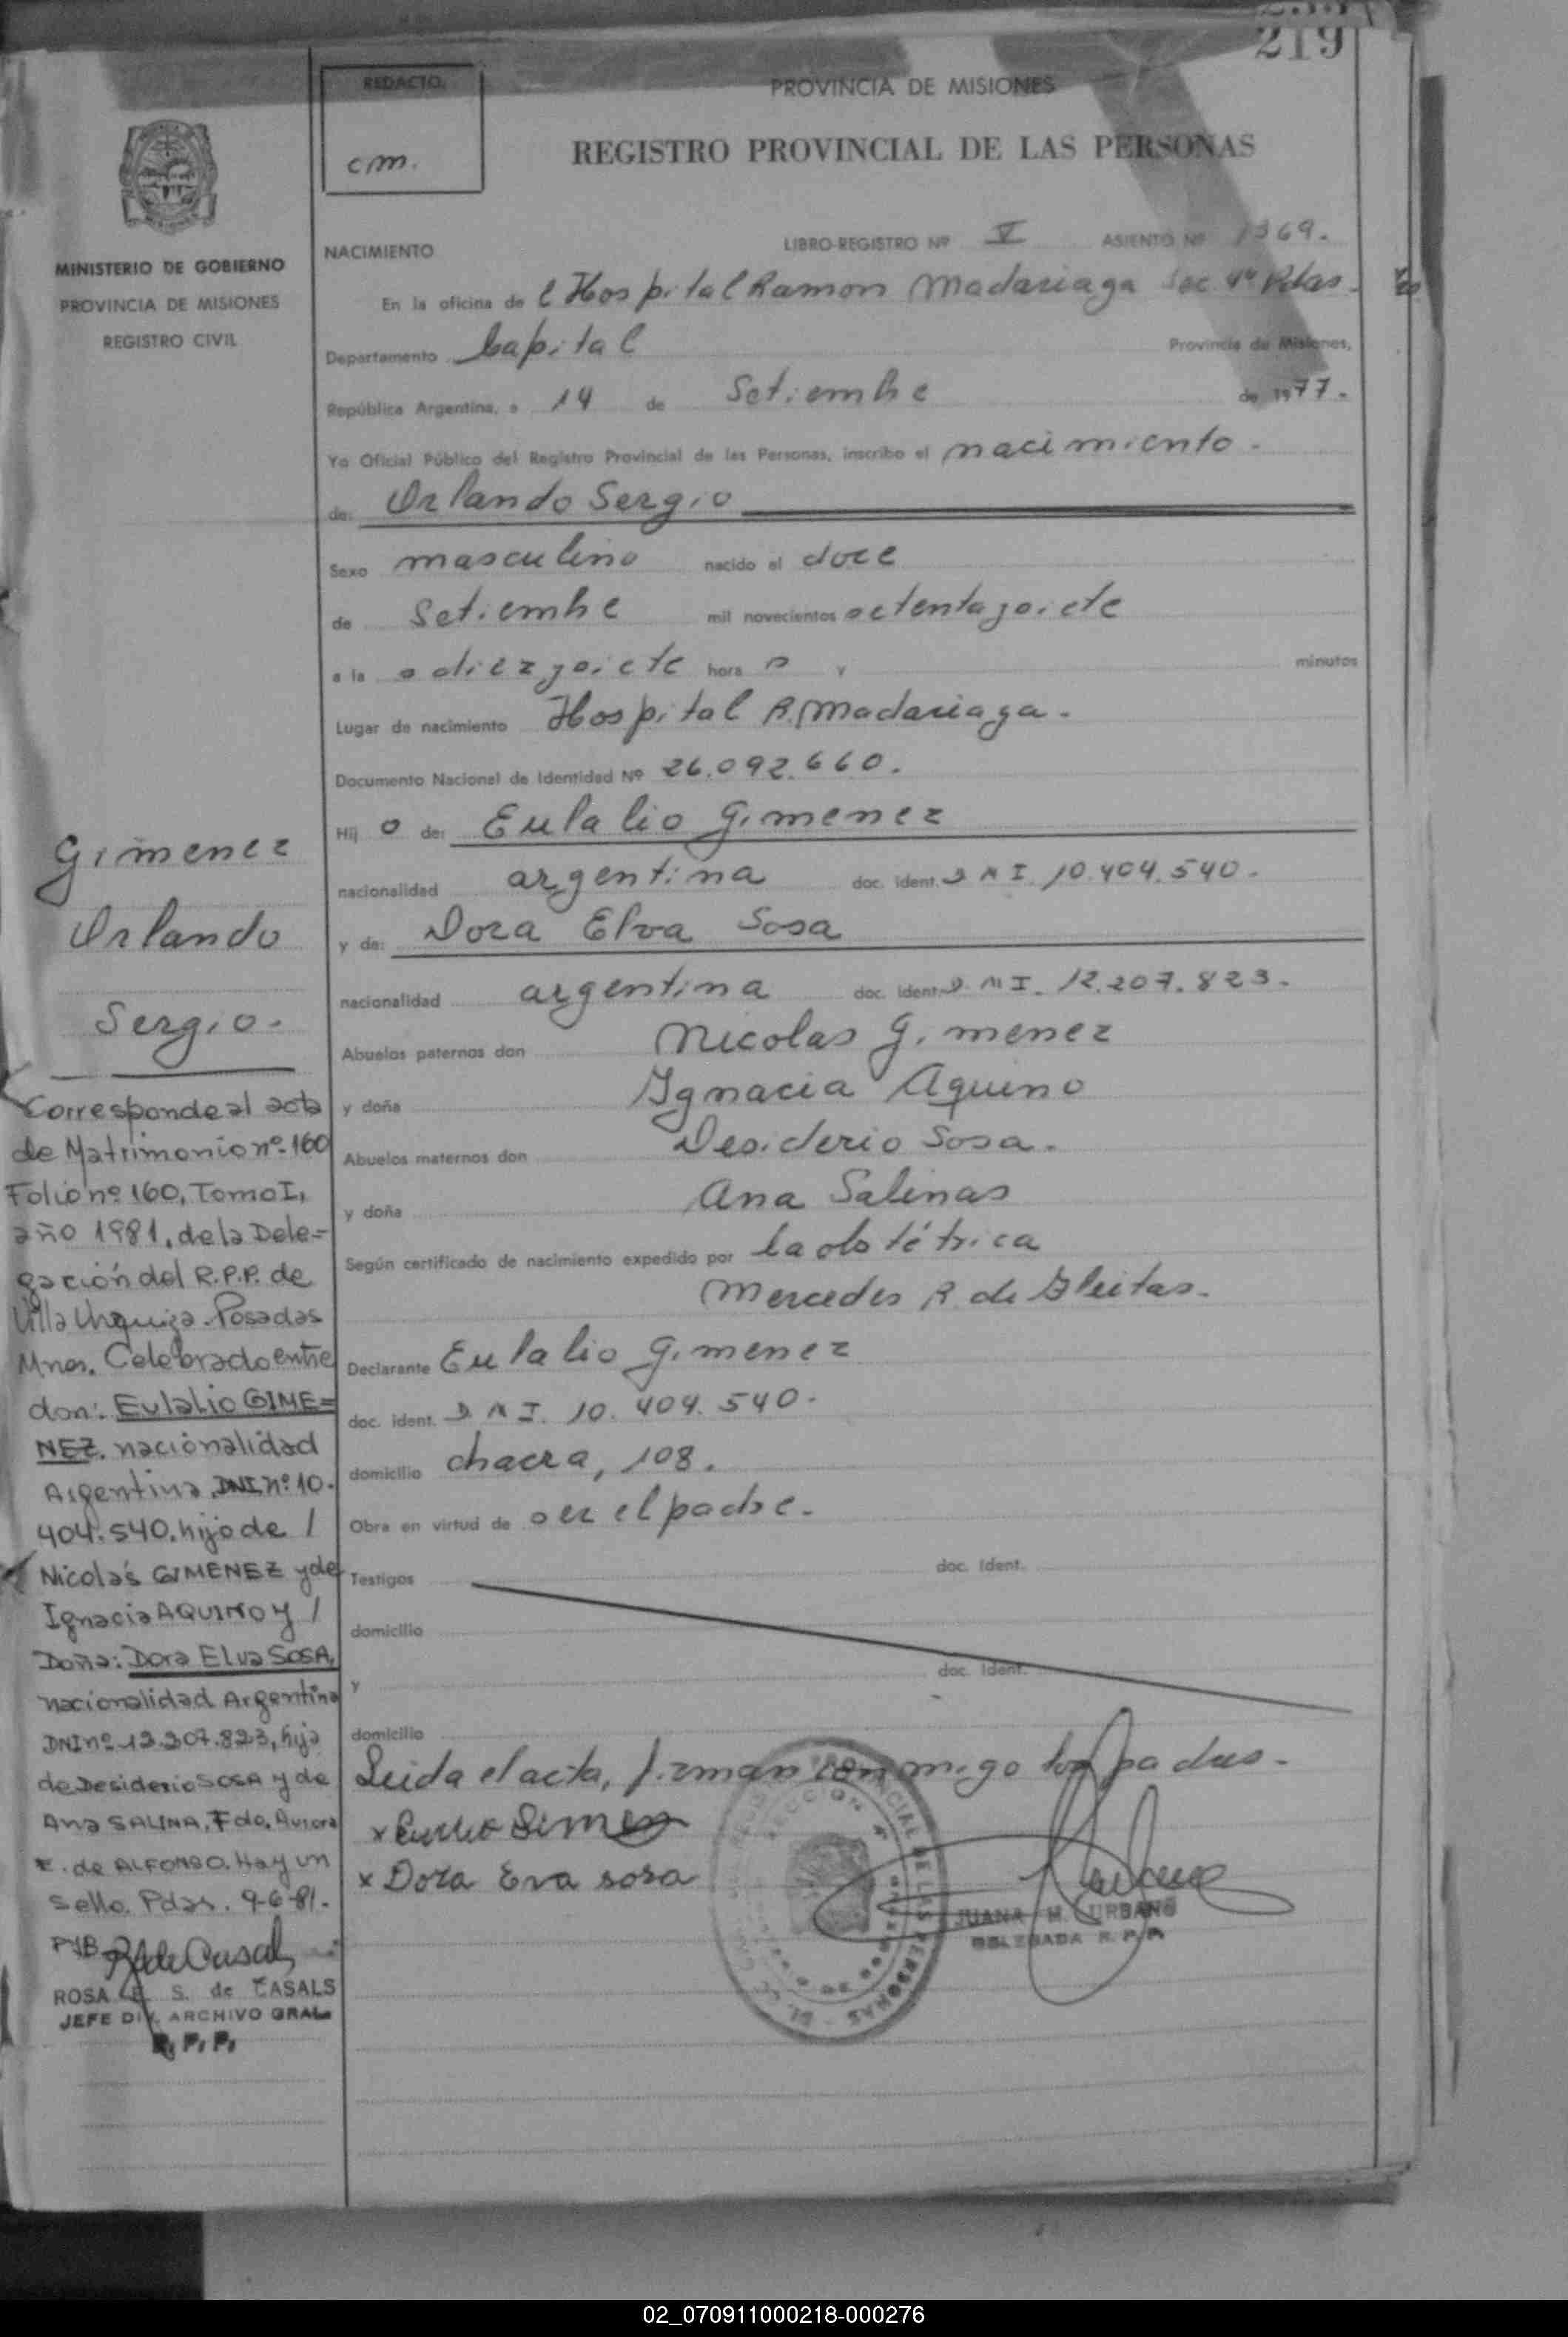 219
REDACTO.
cm.
PROVINCIA DE MISIONES
REGISTRO PROVINCIAL DE LAS PERSONAS
MINISTERIO DE GOBIERNO
PROVINCIA DE MISIONES
REGISTRO CIVIL
NACIMIENTO LIBRO-REGISTRO Nº V ASIENTO Nº 1369.
En la oficina de l Hospital Ramon Madariaga Sec. 4ª Pdas.
Departamento Capital Provincia de Misiones,
República Argentina, a 14 de Setiembre de 1977.
Yo Oficial Público del Registro Provincial de las Personas, inscribo el nacimiento.
de: Orlando Sergio
Sexo masculino nacido el doce
de Setiembre mil novecientos setentaysiete
a la s diezysiete hora s y minutos
Lugar de nacimiento Hospital R. Madariaga.
Documento Nacional de Identidad Nº 26.092.660.
Hij o de: Eulalio Gimenez
nacionalidad argentina doc. ident. D N I. 10.404.540.
y de: Dora Elva Sosa
nacionalidad argentina doc. ident. D. N I. 12.207.823.
Abuelos paternos don Nicolas Gimenez
y doña Ignacia Aquino
Abuelos maternos don Desiderio Sosa.
y doña Ana Salinas
Según certificado de nacimiento expedido por la obstétrica
Mercedes R. de Fleitas.
Declarante Eulalio Gimenez
doc. ident. D. N I. 10. 404. 540.
domicilio chacra, 108.
Obra en virtud de ser el padre.
Testigos doc. ident.
domicilio
y doc. ident.
domicilio
Leida el acta, firman conmigo los padres.
x Gimenez
x Dora Eva sosa
JUANA H. URBANO
DELEGADA R. P. P.
Gimenez
Orlando
Sergio.
Corresponde al acta
de Matrimonio nº 160
Folio nº 160, Tomo I,
año 1981, de la Dele=
gación del R.P.P. de
Villa Urquiza. Posadas
Mnes. Celebrado entre
don: Eulalio GIME=
NEZ. nacionalidad
Argentina, DNI nº 10.
404.540, hijo de /
Nicolás GIMENEZ y de
Ignacia AQUINO y /
Doña: Dora Elva SOSA,
nacionalidad Argentina
DNI nº 12.207.823, hija
de Desiderio SOSA y de
Ana SALINA, Fdo. Aurora
E. de ALFONSO. Hay un
Sello. Pdas. 9-6-81.
ROSA E. S. de CASALS
JEFE DIV. ARCHIVO GRAL
R. P. P.
02_070911000218-000276